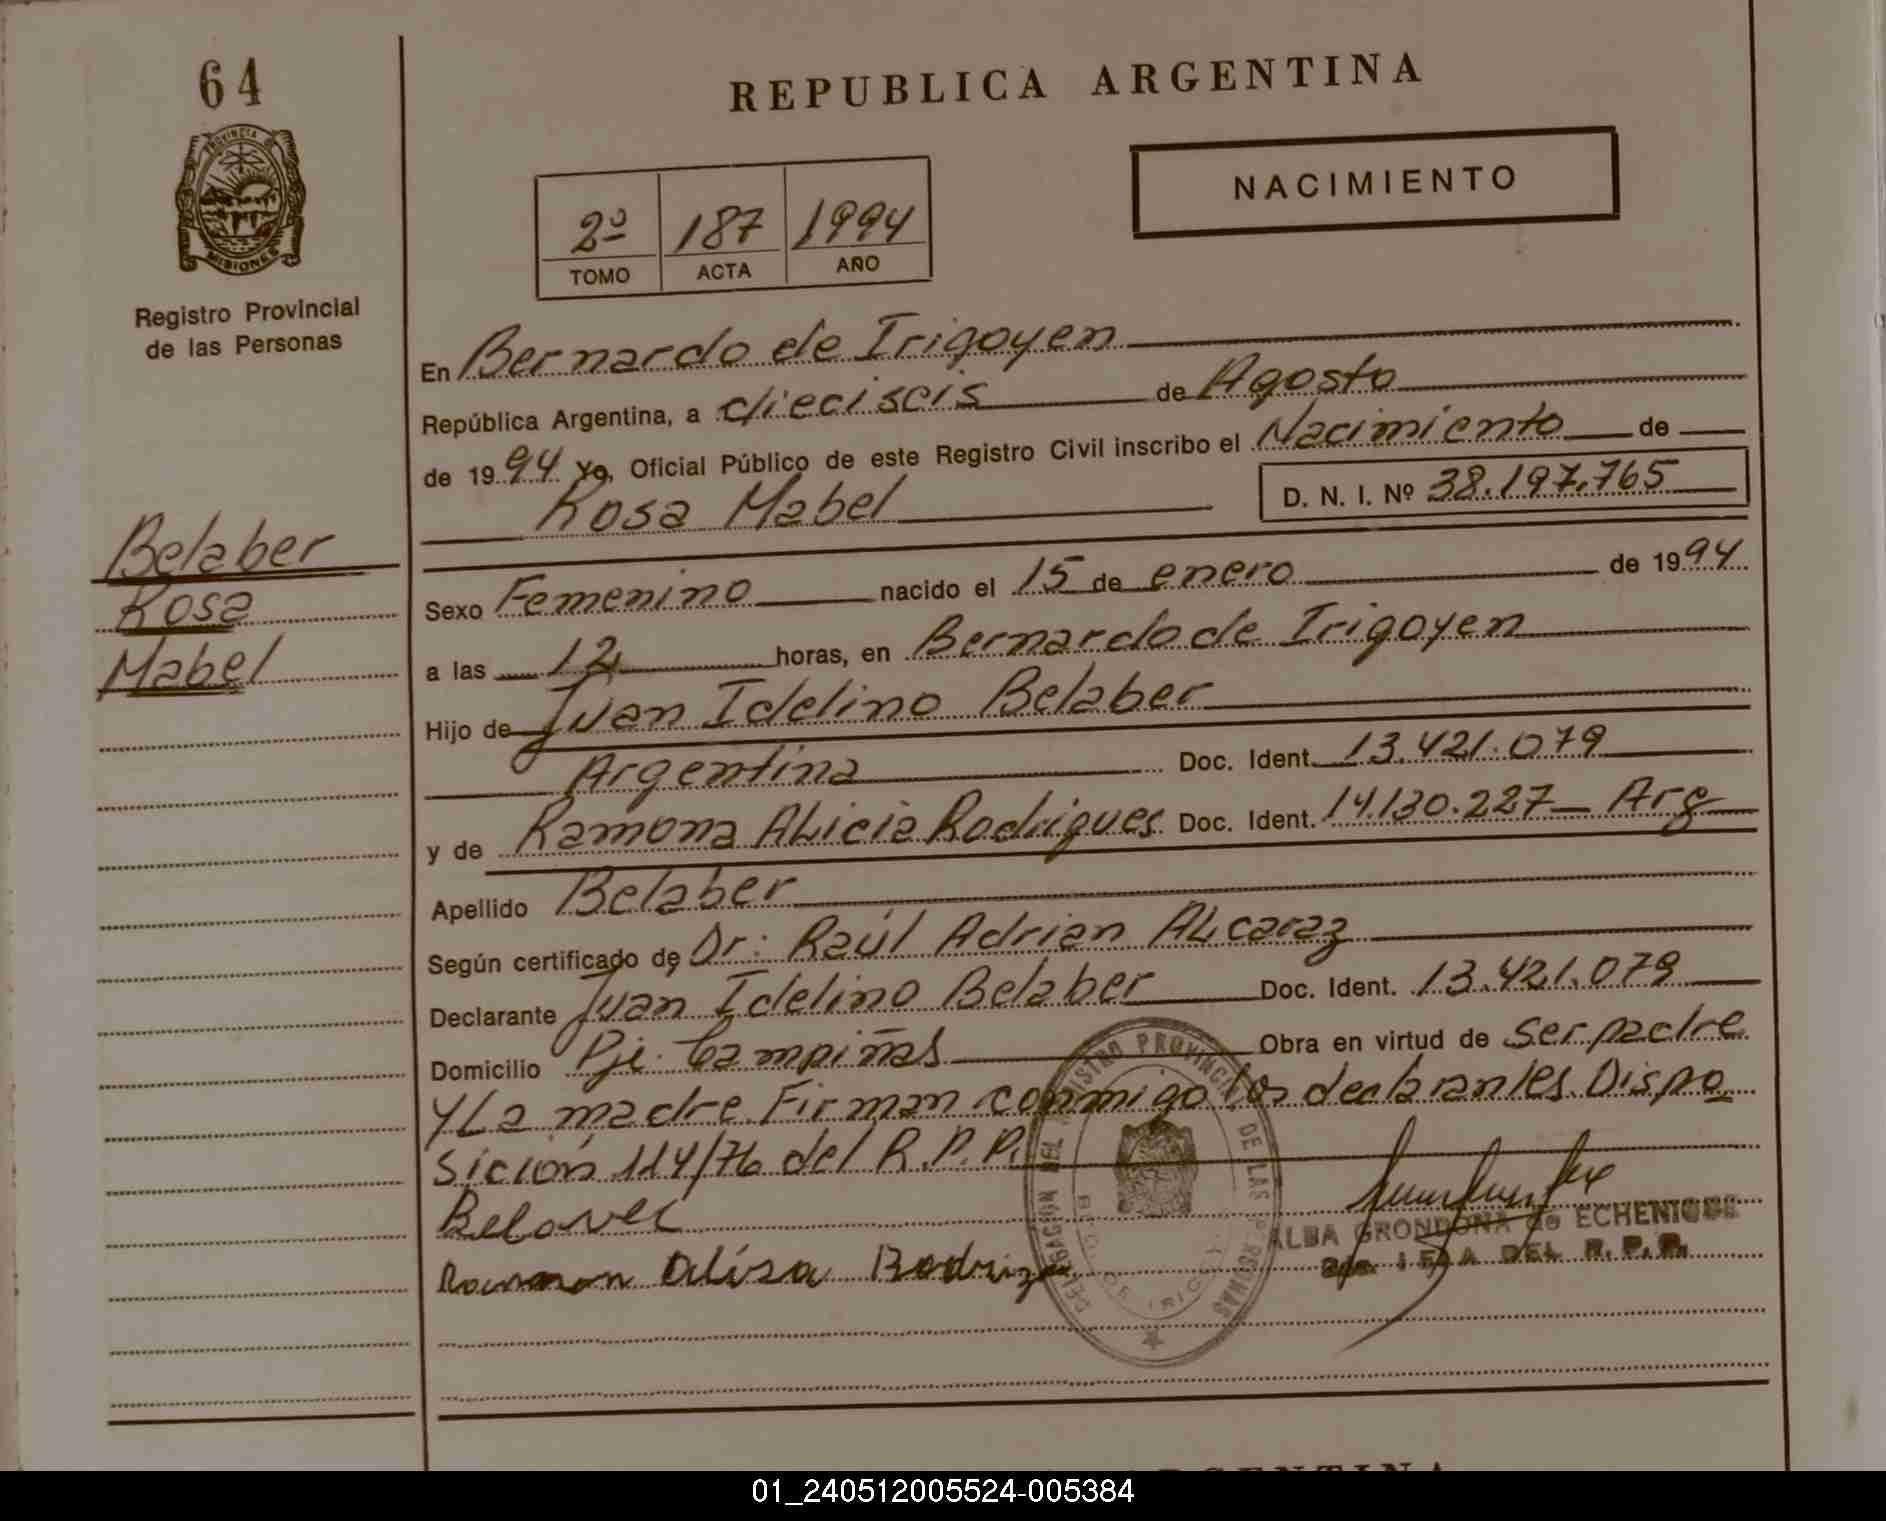 64
PROVINCIA
MISIONES
Registro Provincial
de las Personas
Belaber
Rosa
Mabel
REPUBLICA ARGENTINA
NACIMIENTO
2º 187 1994
TOMO ACTA AÑO
En Bernardo de Irigoyen
República Argentina, a dieciseis de Agosto
de 1994 Yo, Oficial Público de este Registro Civil inscribo el Nacimiento de
Rosa Mabel D. N. I. Nº 38.197.765
Sexo Femenino nacido el 15 de enero de 1994
a las 12 horas, en Bernardo de Irigoyen
Hijo de Juan Idelino Belaber
Argentina Doc. Ident. 13.421.079
y de Ramona ALicia Rodrigues Doc. Ident. 14.130.227 Arg
Apellido Belaber
Según certificado de Dr: Raúl Adrian ALcaraz
Declarante Juan Idelino Belaber Doc. Ident. 13.421.079
Domicilio Pje. Campiñas Obra en virtud de ser padre
y La madre. Firman conmigo los declarantes. Dispo
sición 114/76 del R.P.P.
DELEGACION DEL REGISTRO PROVINCIAL DE LAS PERSONAS
BDO. DE IRIGOY.
ALBA GRONDONA de ECHENIQUE
DEL R.P.P.
01_240512005524-005384